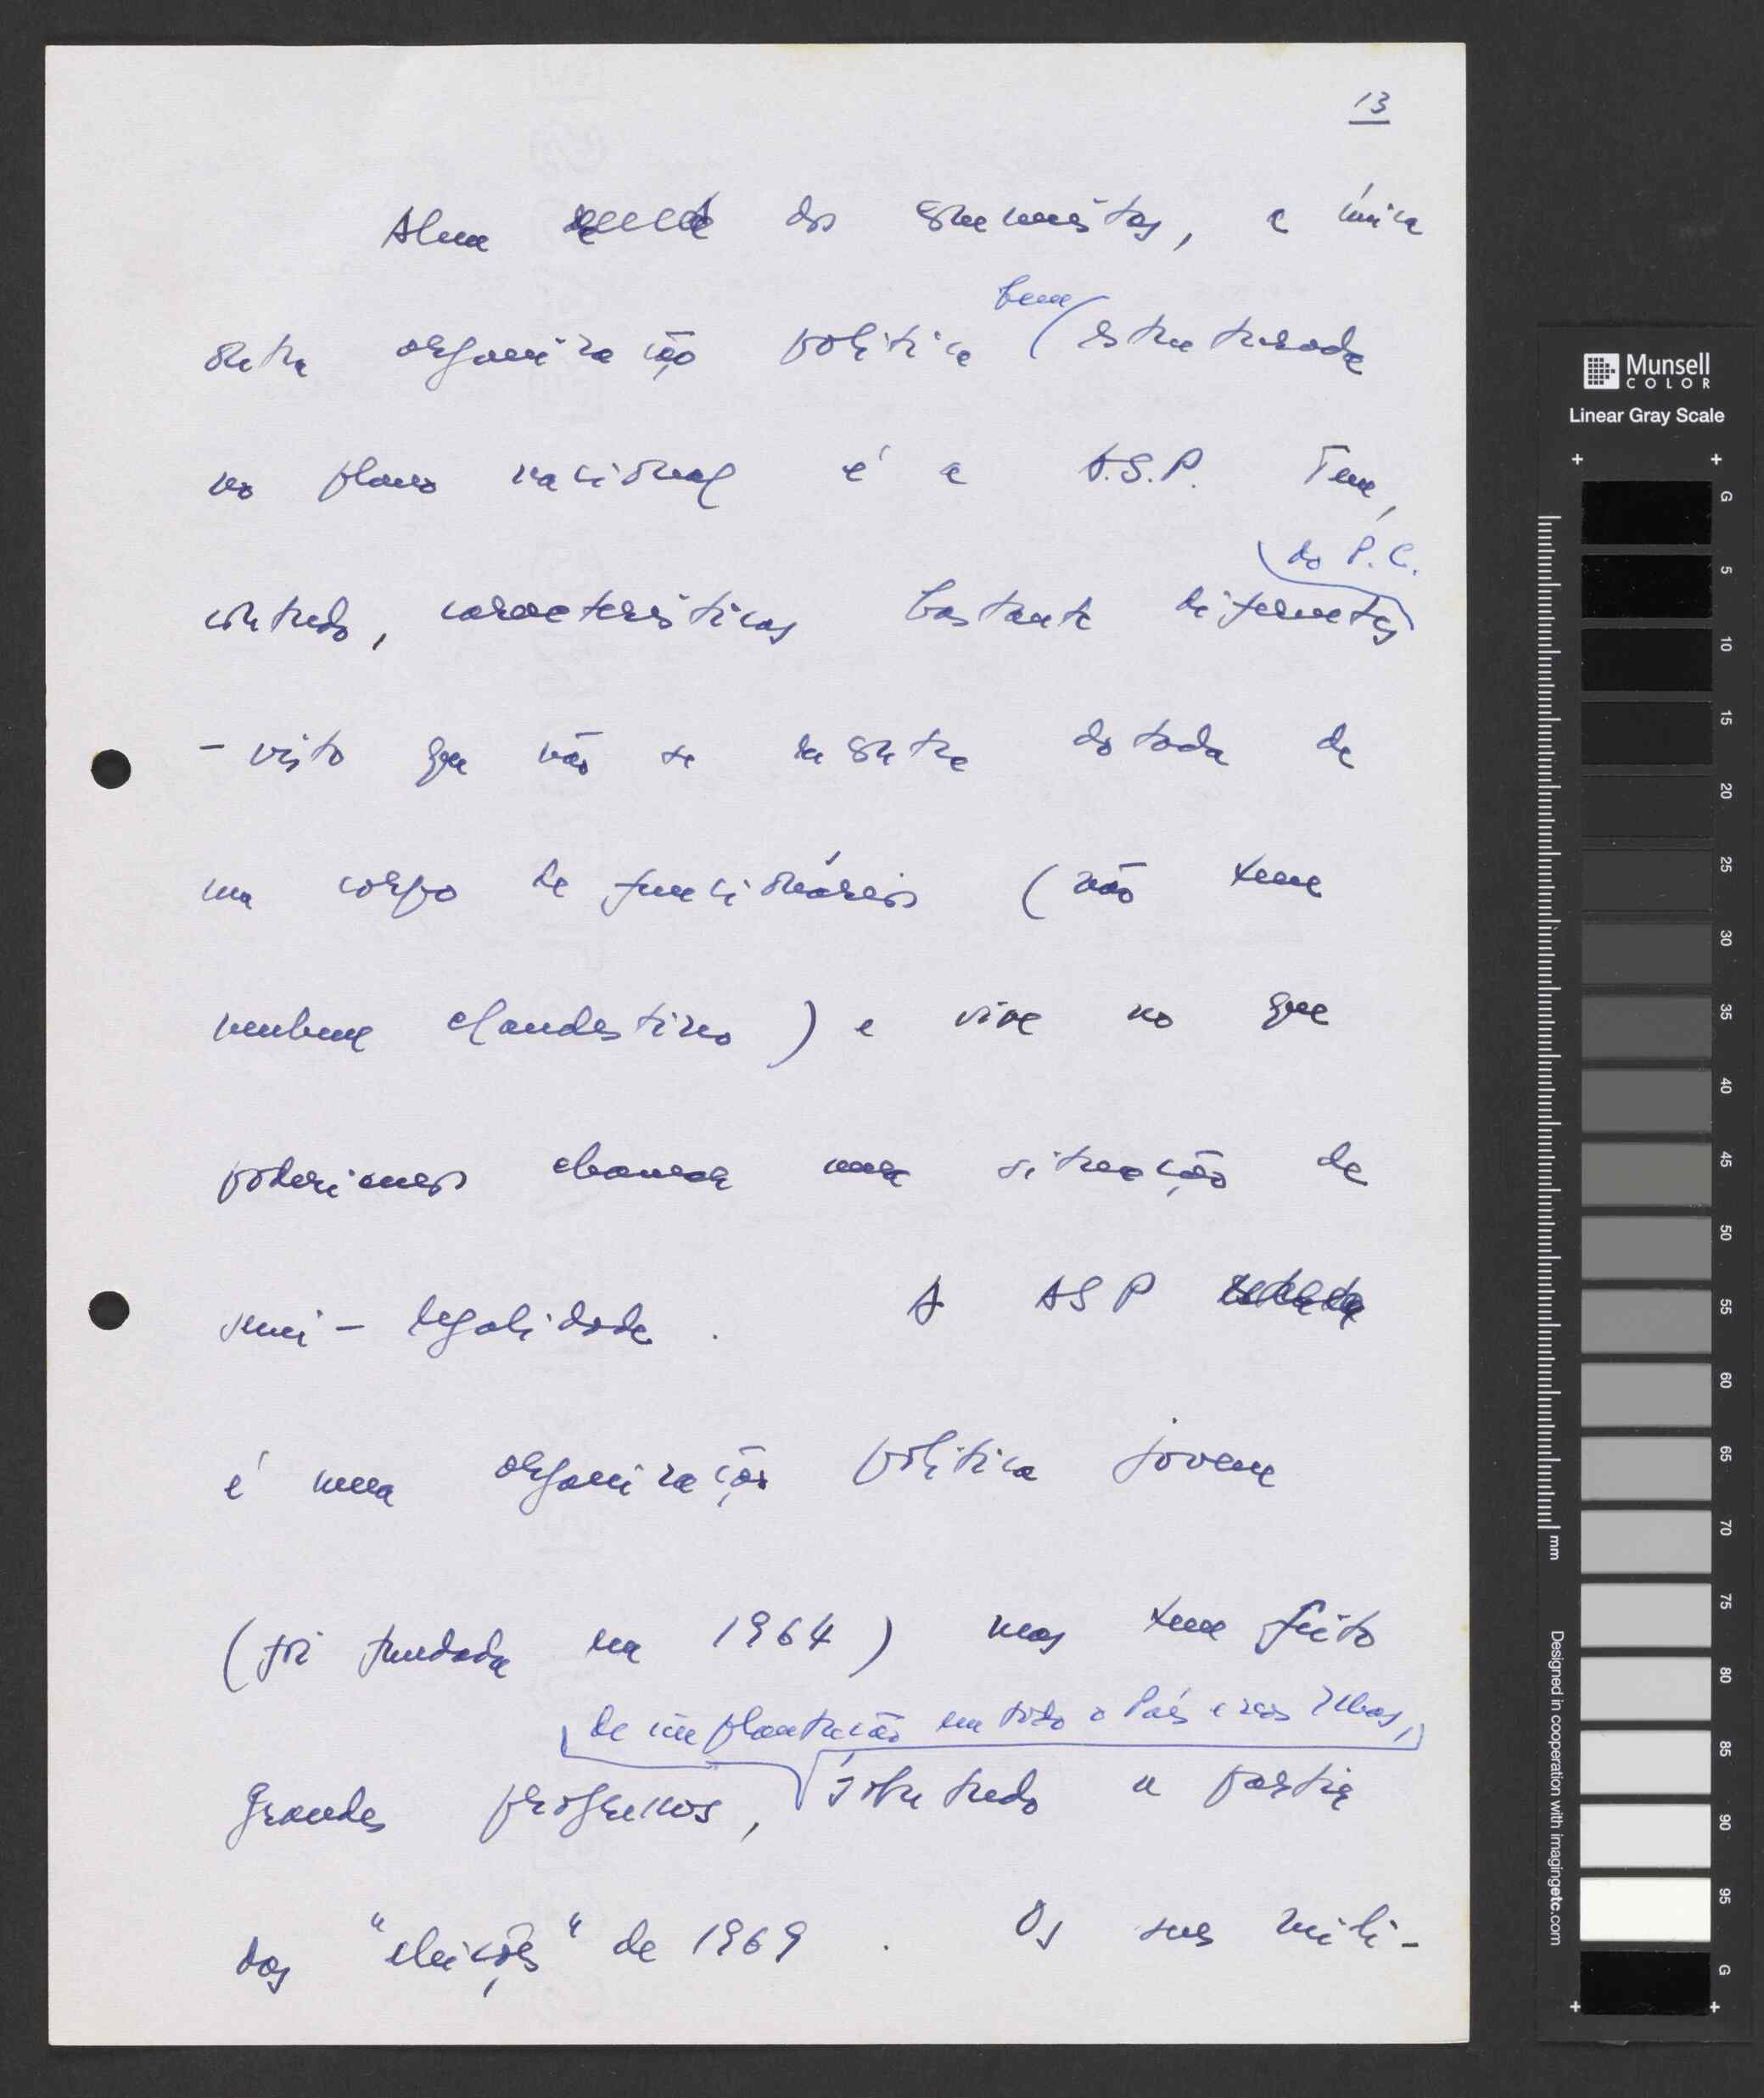 13
Alem dos comunistas, a única
outra organização politica bem estruturada
no plano nacional é a A.S.P. Tem,
contudo, caracteristicas bastante diferentes do P.C.
- visto que não se encontra dotada de
um corpo de funcionários (não tem
nenhum clandestino) e vive no que
poderiamos chamar uma situação de
semi-legalidade. A ASP
é uma organização politica jovem
(foi fundada em 1964) mas tem feito
de implantação em todo o País e nas Ilhas,
grandes progressos, sobretudo a partir
das "eleições" de 1969. Os seus mili-
Munsell
COLOR
Linear Gray Scale
G
5
10
15
20
25
30
35
40
45
50
55
60
65
70
75
80
85
90
95
G
mm
Designed in cooperation with imagingetc.com